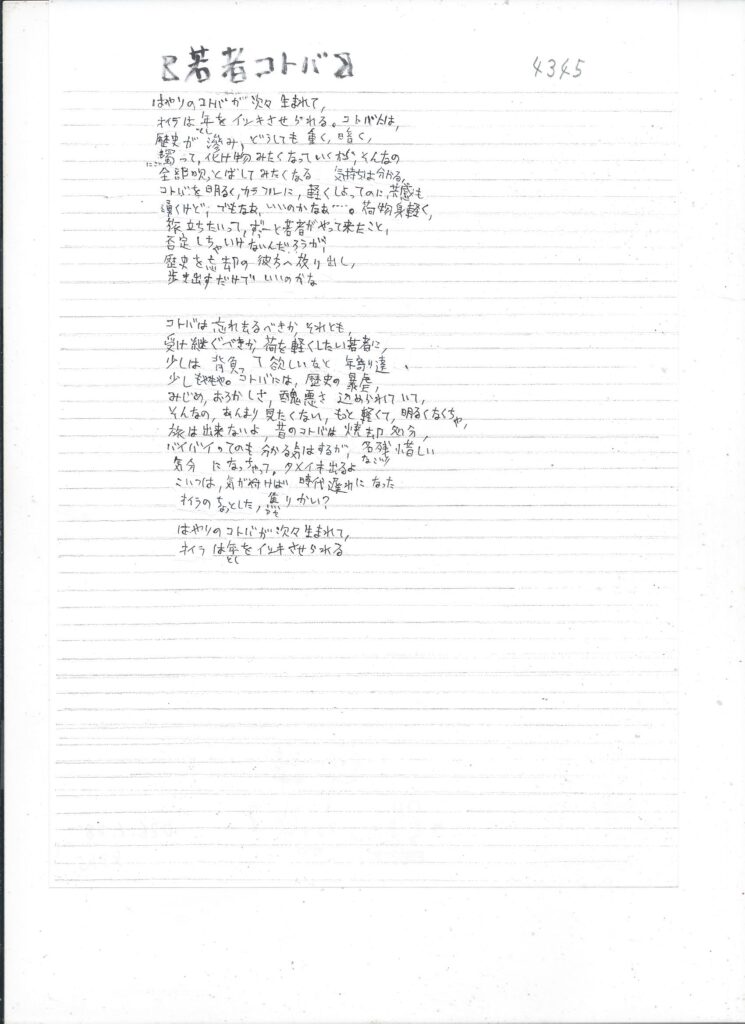 【若者コトバ】 4345
はやりのコトバが次々生まれて、
オイラは年をイシキさせられる。コトバには、
とし
歴史が滲み、どうしても重く、暗く、
濁って、化け物みたくなっていくわな。そんなの
にご
全部吹っとばしてみたくなる 気持ちは分かる、
コトバを明るく、カラフルに、軽くしよってのに、共感も
湧くけど、でもなあ、いいのかなあ……。荷物身軽く、
旅立ちたいって、ずーっと若者がやって来たこと、
否定しちゃいけないんだろうが、
歴史を忘却の彼方へ放り出し、
歩き出すだけでいいのかな
コトバは忘れ去るべきか、それとも、
受け継ぐべきか、荷を軽くしたい若者に、
少しは背負って欲しいなと 年寄り達、
少しもやもや。コトバには、歴史の暴虐、
みじめ、おろかしさ、醜悪さ 込められていて、
そんなの、あんまり見たくない、もっと軽くて、明るくなくちゃ、
旅は出来ないよ、昔のコトバは焼却処分、
バイバイってのも分かる気はするが、名残惜しい
なごり
気分 になっちゃって。タメイキ出るよ
こいつは、気が付けば 時代遅れになった
オイラのちょっとした、焦りかい?
はやりのコトバが次々生まれて、
オイラは年をイシキさせられる
とし